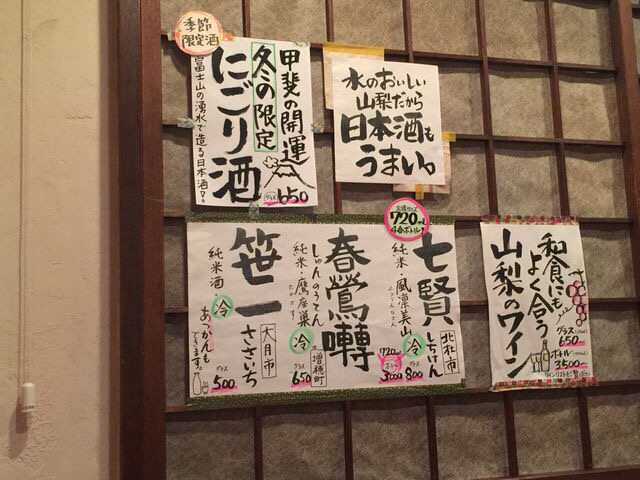 季節
限定酒
甲斐の開運
冬の限定
にごり酒
富士山の湧水で造る日本酒
グラス
650
水のおいしい
山梨だから
日本酒も
うまい。
720ml
4合ボトル
七賢
しちけん
北杜市
純米・風凛美山
冷
グラス
800
720ml
ボトル
3000
春鶯囀
しゅんのうてん
増穂町
純米・鷹座巣
冷
グラス
650
笹一
ささいち
大月市
純米酒
冷
あつかんも
できます。
グラス
500
和食にも
よく合う
山梨のワイン
グラス
650
ボトル
3500